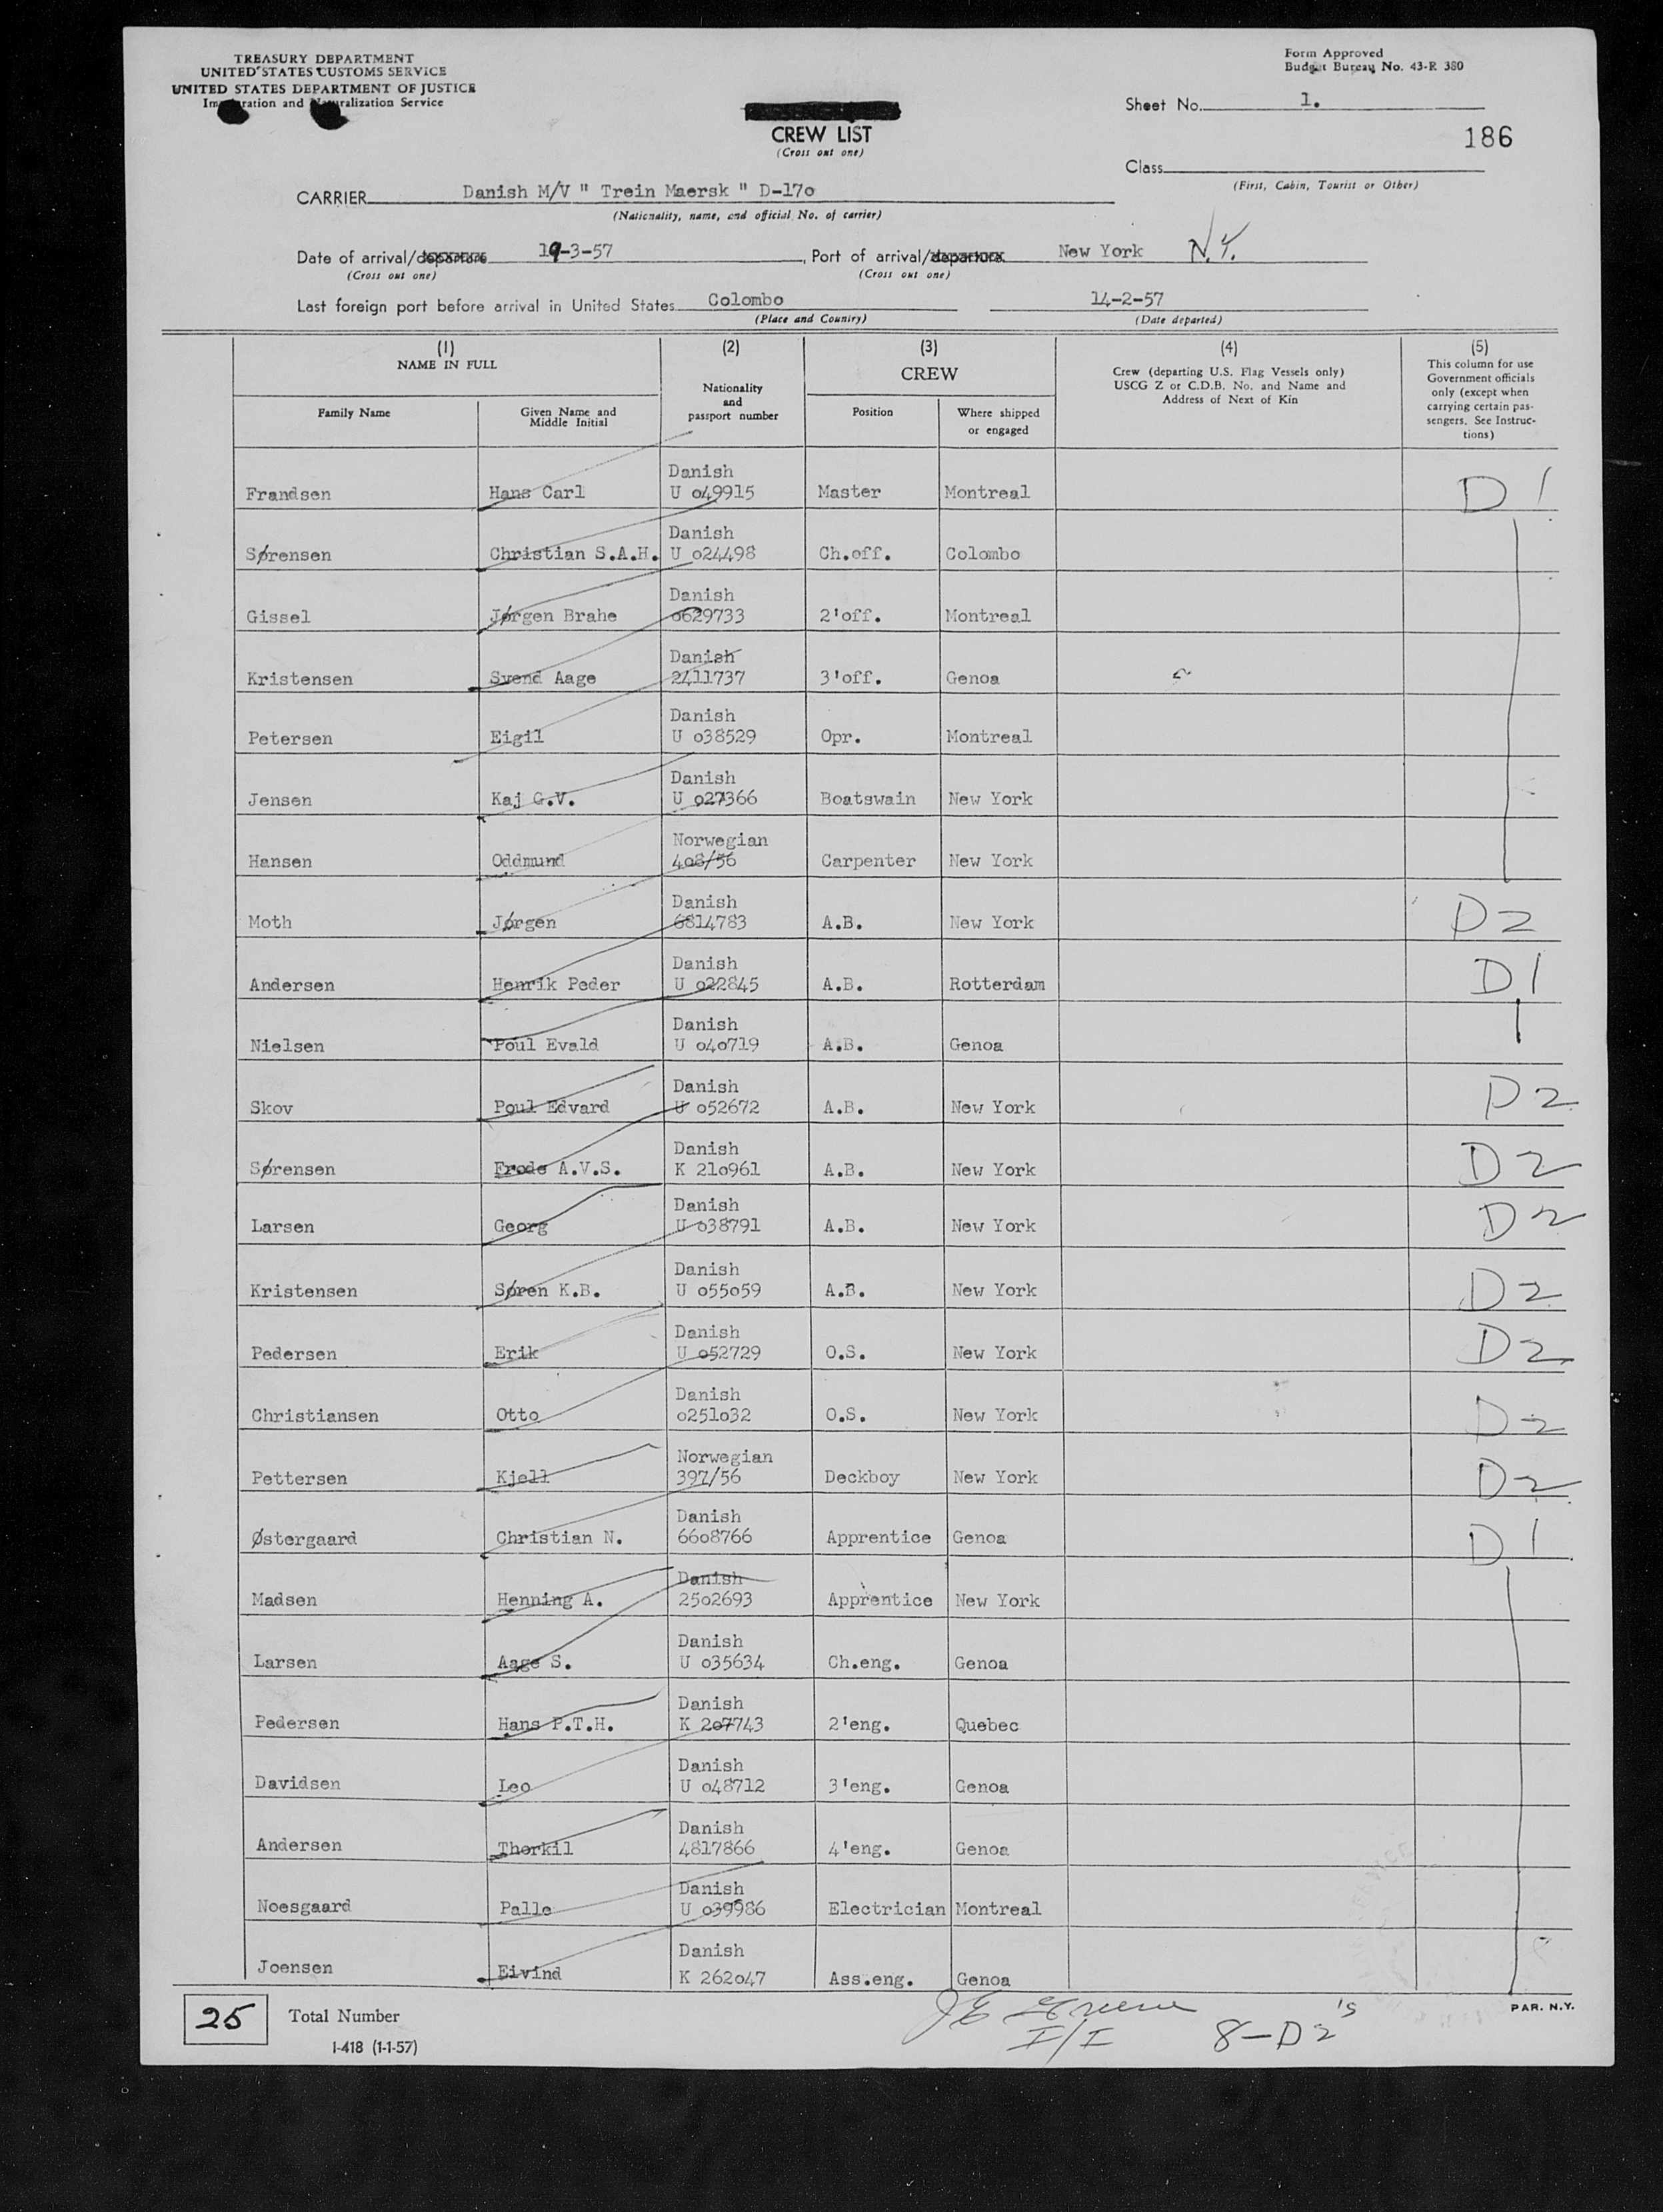 TREASURY DEPARTMENT
UNITED STATES CUSTOMS SERVICE
UNITED STATES DEPARTMENT OF JUSTICE
Immigration and Naturalization Service
Form Approved
Budget Bureau No. 43-R 380
Sheet No. 1.
CREW LIST
(Cross out one)
186
Class
(First, Cabin, Tourist or Other)
CARRIER Danish M/V " Trein Maersk " D-17o
(Nationality, name, and official No. of carrier)
Date of arrival/departure 19-3-57, Port of arrival/departure New York N.Y.
(Cross out one) (Cross out one)
Last foreign port before arrival in United States Colombo 14-2-57
(Place and Country) (Date departed)
(1) (2) (3) (4) (5)
NAME IN FULL
Nationality and passport number
CREW
Crew (departing U.S. Flag Vessels only)
USCG Z or C.D.B. No. and Name and
Address of Next of Kin
This column for use
Government officials
only (except when
carrying certain pas-
sengers. See Instruc-
tions)
Family Name
Given Name and
Middle Initial
Position
Where shipped
or engaged
Danish
Frandsen Hans Carl U o49915 Master Montreal D 1
Danish
Sørensen Christian S.A.H. U o24498 Ch.off. Colombo
Danish
Gissel Jørgen Brahe o629733 2'off. Montreal
Danish
Kristensen Svend Aage 2411737 3'off. Genoa
Danish
Petersen Eigil U o38529 Opr. Montreal
Danish
Jensen Kaj G.V. U o27366 Boatswain New York
Norwegian
Hansen Oddmund 4o8/56 Carpenter New York
Danish
Moth Jørgen 6814783 A.B. New York D2
Danish
Andersen Henrik Peder U o22845 A.B. Rotterdam D1
Danish
Nielsen Poul Evald U o4o719 A.B. Genoa
Danish
Skov Poul Edvard U o52672 A.B. New York D2
Danish
Sørensen Frode A.V.S. K 21o961 A.B. New York D2
Danish
Larsen Georg U o38791 A.B. New York D2
Danish
Kristensen Søren K.B. U o55o59 A.B. New York D2
Danish
Pedersen Erik U o52729 O.S. New York D2
Danish
Christiansen Otto o251o32 O.S. New York D2
Norwegian
Pettersen Kjell 397/56 Deckboy New York D2
Danish
Østergaard Christian N. 66o8766 Apprentice Genoa D1
Danish
Madsen Henning A. 25o2693 Apprentice New York
Danish
Larsen Aage S. U o35634 Ch.eng. Genoa
Danish
Pedersen Hans P.T.H. K 2o7743 2'eng. Quebec
Danish
Davidsen Leo U o48712 3'eng. Genoa
Danish
Andersen Thorkil 4817866 4'eng. Genoa
Danish
Noesgaard Palle U o39986 Electrician Montreal
Danish
Joensen Eivind K 262o47 Ass.eng. Genoa
25 Total Number
I-418 (1-1-57)
I/I
8-D2's
PAR. N.Y.